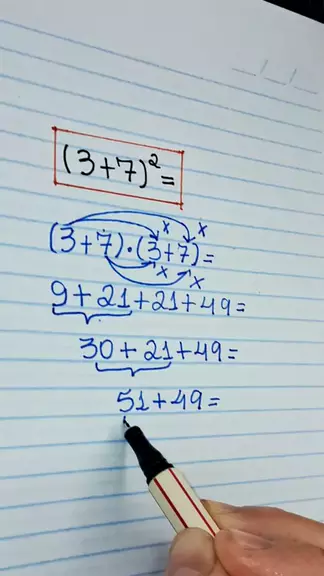 (3+7)²=
(3+7)·(3+7)=
x x
x x
9+21+21+49=
30+21+49=
51+49=